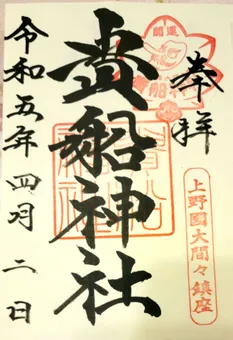 奉拝
上野國大間々鎮座
開運
貴船神社
令和五年四月二日